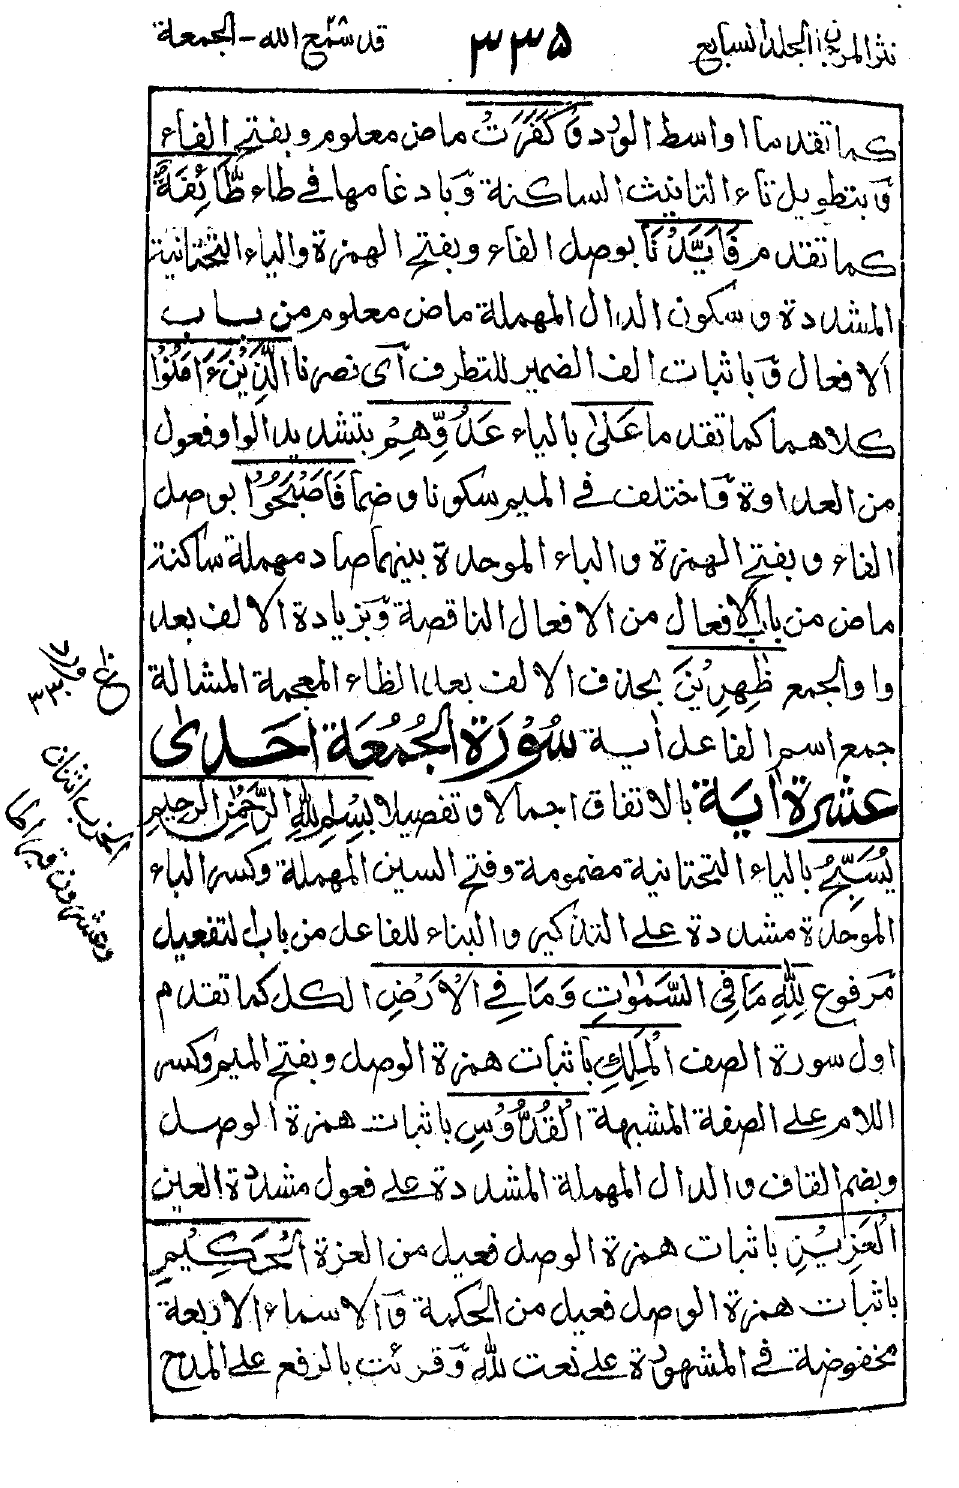 نثر المرجان الجلد السابع ٣٣٥ قد سمع الله - الجمعة
كما تقدم اواسط الورد وَكَفَرَتْ ماض معلوم وبفتح الفاء
وبتطويل تاء التانيث الساكنة وبادغامها في طاء طَّآئِفَةٌ
كما تقدم فَأَيَّدْنَا بوصل الفاء وبفتح الهمزة والياء التحتانية
المشددة وسكون الدال المهملة ماض معلوم من باب
الافعال وباثبات الف الضمير للتطرف أى نصرنا الَّذِيْنَ ءَامَنُوْا
كلاهما كما تقدما عَلٰى بالياء عَدُوِّهِمْ بتشديد الواو فعول
من العداوة واختلف في الميم سكونا وضما فَأَصْبَحُوْا بوصل
الفاء وبفتح الهمزة والباء الموحدة بينهما صاد مهملة ساكنة
ماض من باب الافعال من الافعال الناقصة وبزيادة الالف بعد
واو الجمع ظٰهِرِيْنَ بحذف الالف بعد الظاء المعجمة المشالة
جمع اسم الفاعل أية سُوْرَةُ الْجُمُعَةِ احدى
عشرة أية بالاتفاق اجمالا وتفصيلا بِسْمِ اللهِ الرَّحْمٰنِ الرحيم
يُسَبِّحُ بالياء التحتانية مضمومة وفتح السين المهملة وكسر الباء
الموحدة مشددة على التذكير والبناء للفاعل من باب التفعيل
مرفوع لِلّٰهِ مَا فِي السَّمٰوٰتِ وَمَا فِي الْأَرْضِ الكل كما تقدم
اول سورة الصف الْمَلِكِ باثبات همزة الوصل وبفتح الميم وكسر
اللام على الصفة المشبهة الْقُدُّوْسِ باثبات همزة الوصل
وبضم القاف والدال المهملة المشددة على فعول مشددة العين
الْعَزِيْزِ باثبات همزة الوصل فعيل من العزة الْحَكِيْمِ
باثبات همزة الوصل فعيل من الحكمة والاسماء الاربعة
مخفوضة في المشهورة على نعت لله وقرئت بالرفع على المدح
ورد
٣٣٠
الحزب اثنان
وعشرون